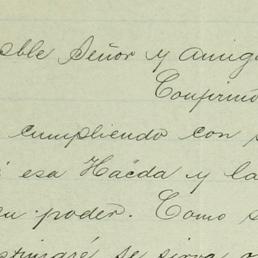 oble Señor y amig
Confirmo
cumpliendo con s
esa Hacda y la
su poder. Como s
se sirva